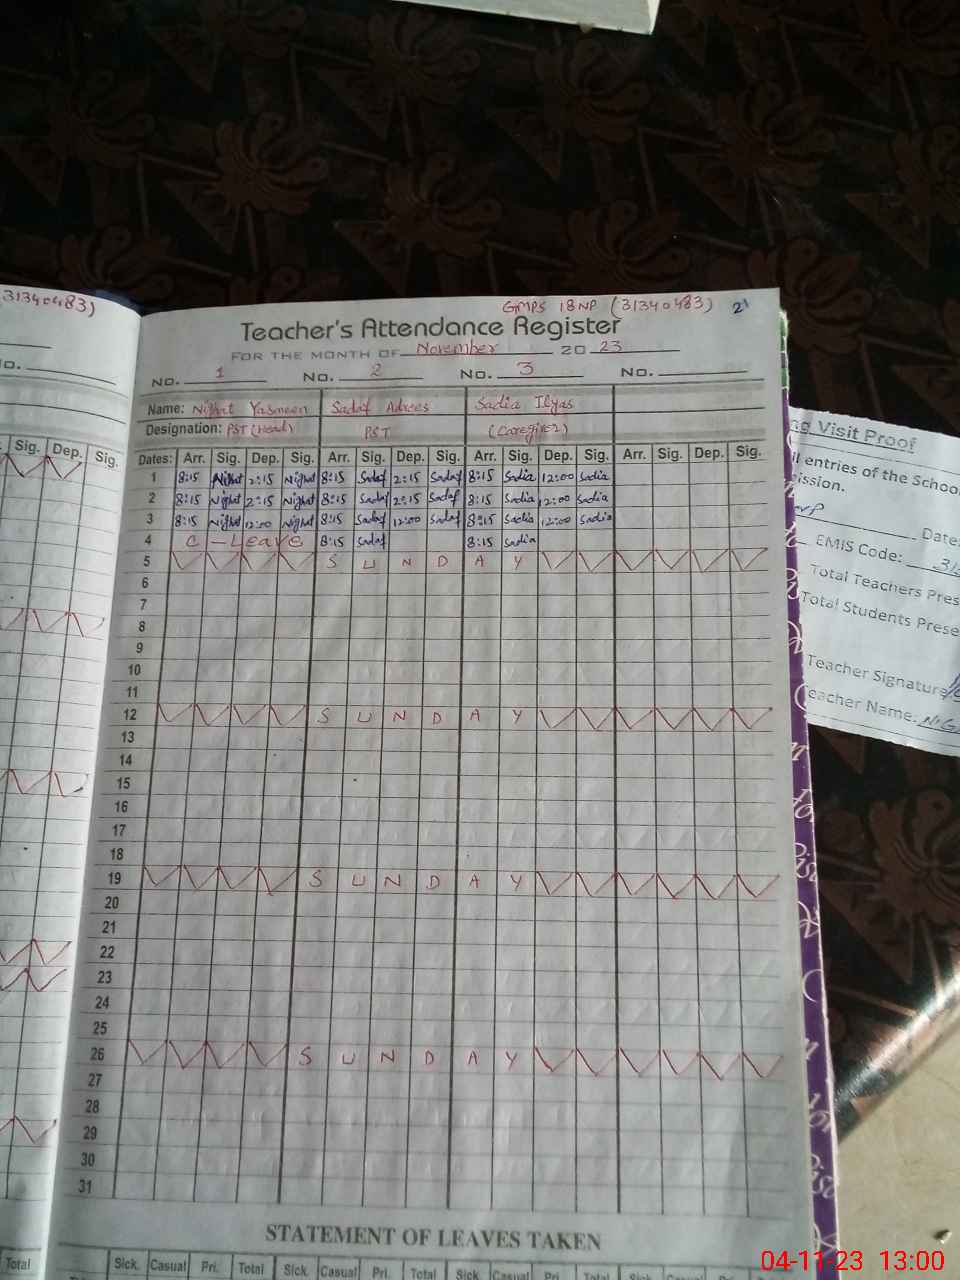 31340483)
GMPS 18NP (31340483) 21
Teacher's Attendance Register
FOR THE MONTH OF November 20 23
NO. 1 NO. 2 NO. 3 NO.
Name: Nighat Yasmeen Sadaf Adrees Sadia Ilyas
Designation: PST (Head) PST (Caregiver)
Sig. Dep. Sig.
Dates: Arr. Sig. Dep. Sig. Arr. Sig. Dep. Sig. Arr. Sig. Dep. Sig. Arr. Sig. Dep. Sig.
1 8:15 Nighat 2:15 Nighat 8:15 Sadaf 2:15 Sadaf 8:15 Sadia 12:00 Sadia
2 8:15 Nighat 2:15 Nighat 8:15 Sadaf 2:15 Sadaf 8:15 Sadia 12:00 Sadia
3 8:15 Nighat 12:00 Nighat 8:15 Sadaf 12:00 Sadaf 8:15 Sadia 12:00 Sadia
4 C-Leave 8:15 Sadaf 8:15 Sadia
5 SUNDAY
6
7
8
9
10
11
12 SUNDAY
13
14
15
16
17
18
19 SUNDAY
20
21
22
23
24
25
26 SUNDAY
27
28
29
30
31
STATEMENT OF LEAVES TAKEN
Total Sick. Casual Pri. Total Sick. Casual Pri. Total Sick. Casual Pri. Total
Visit Proof
entries of the School
Date:
EMIS Code:
Total Teachers
Total Students
Teacher Signature
Teacher Name:
04-11-23 13:00